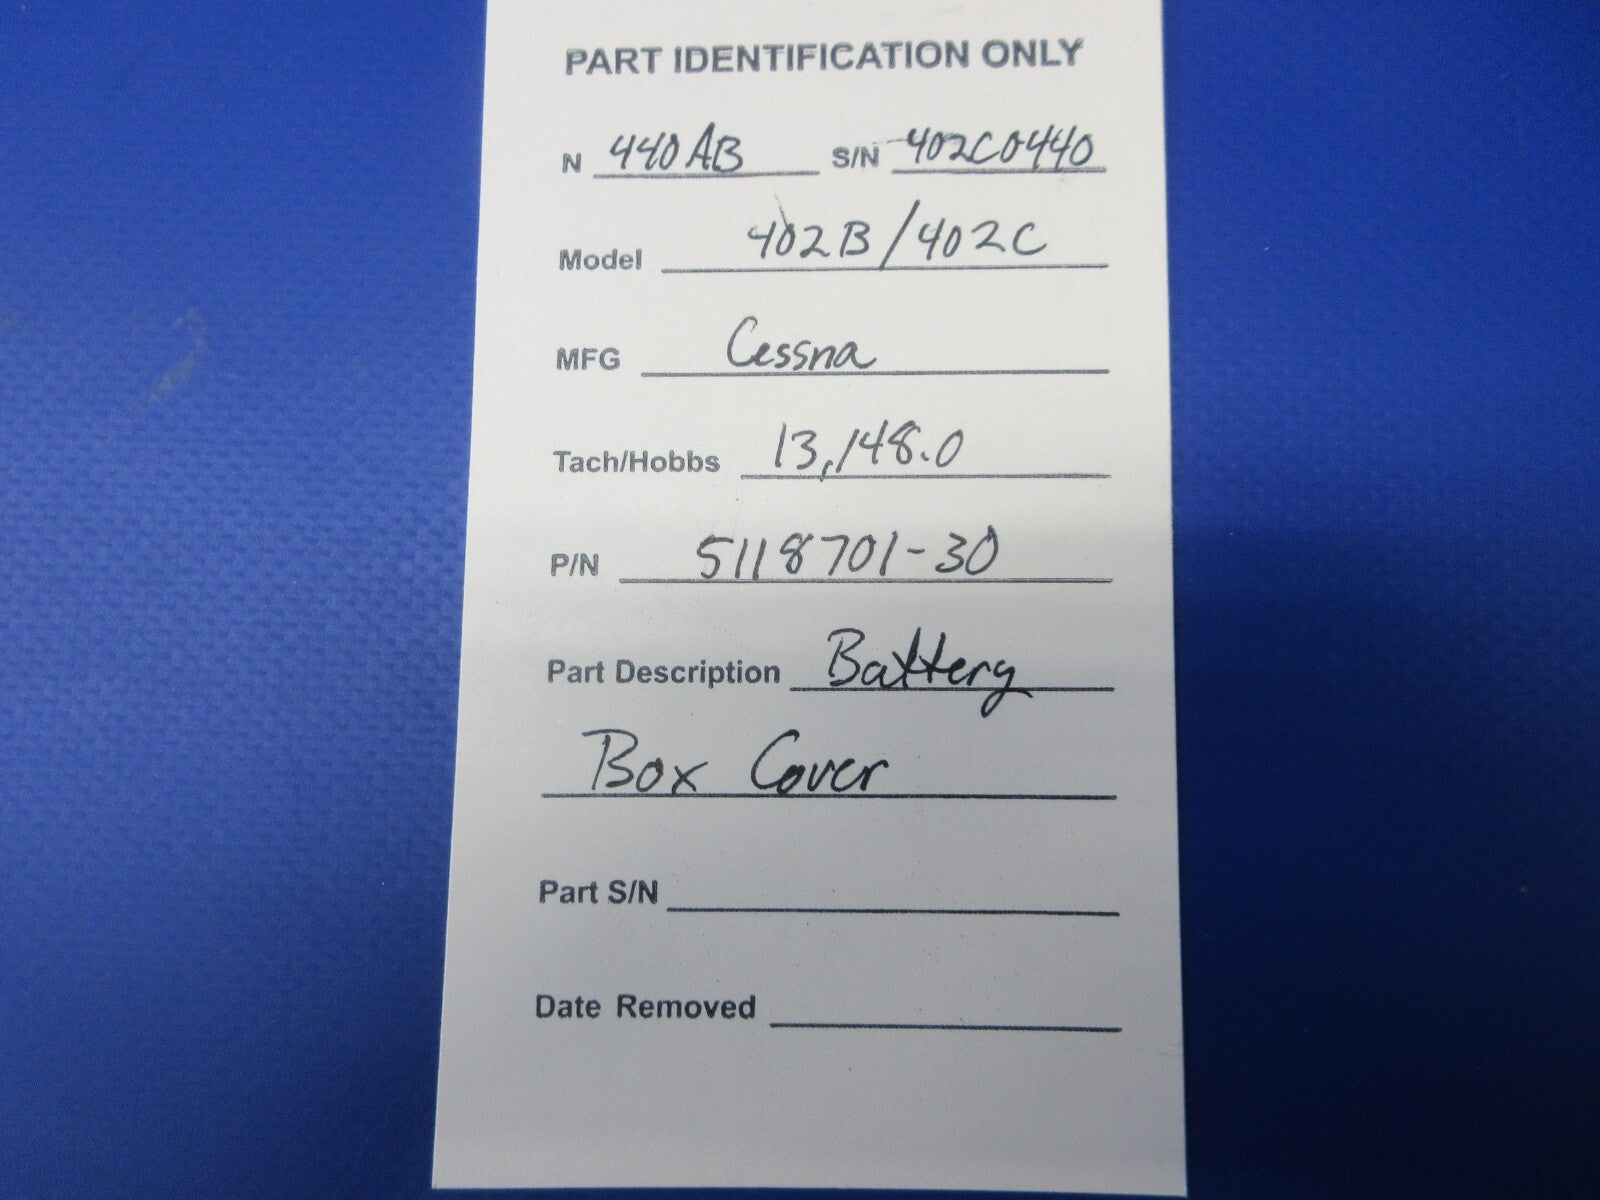 PART IDENTIFICATION ONLY
N 440AB S/N 402C0440
Model 402B/402C
MFG Cessna
Tach/Hobbs 13,148.0
P/N 5118701-30
Part Description Battery
Box Cover
Part S/N
Date Removed